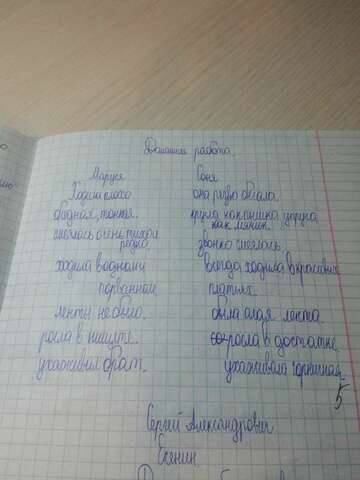 Домашняя работа.
Маруся Соня
Ходила плохо она резво бегала.
бледная, тонкая. кругла как пышка упруга
как мячик.
смеялась очень тихо и
редко звонко смеялась.
ходила в одном и всегда ходила в красивых
порванном платьях.
ленты не было. была алая лента.
росла в нищете. росла в достатке.
ухаживал брат. ухаживала горничная.
5
Сергей Александрович
Есенин.